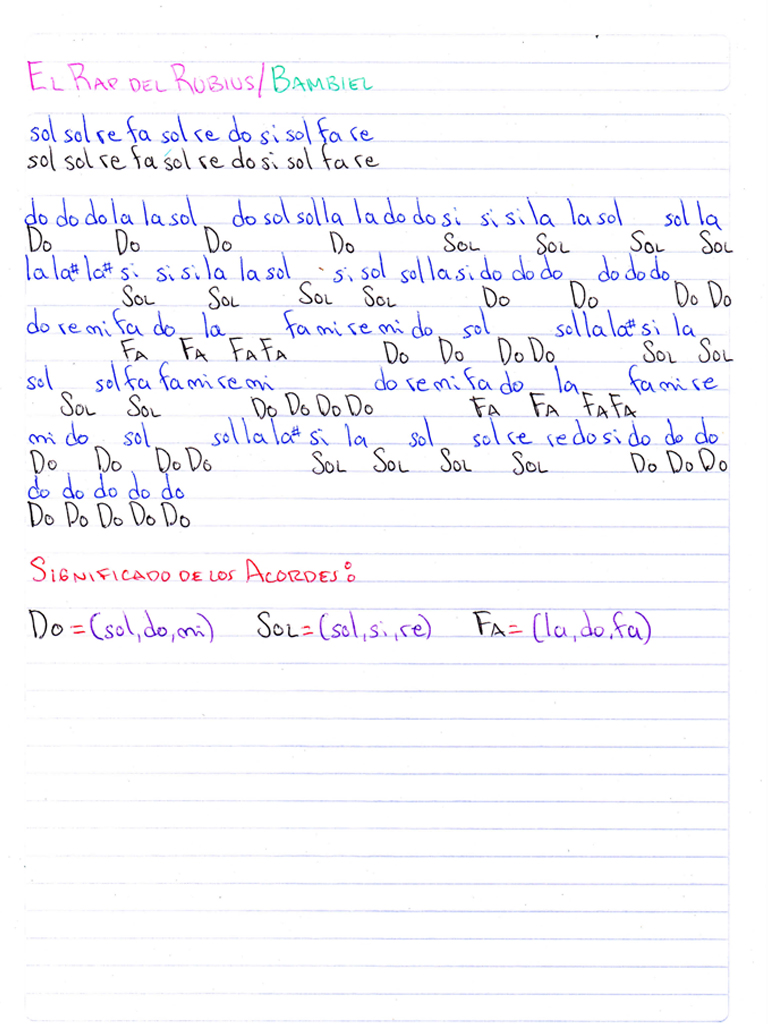 El Rap del Rubius/Bambiel
sol sol re fa sol re do si sol fa re
sol sol re fa sol re do si sol fa re
do do do la la sol do sol sol la la do do si si si la la sol sol la
Do Do Do Do Sol Sol Sol Sol
la la# la# si si si la la sol si sol sol la si do do do do do do
Sol Sol Sol Sol Do Do Do Do
do re mi fa do la fa mi re mi do sol sol la la# si la
Fa Fa Fa Fa Do Do Do Do Sol Sol
sol sol fa fa mi re mi do re mi fa do la fa mi re
Sol Sol Do Do Do Do Fa Fa Fa Fa
mi do sol sol la la# si la sol sol re re do si do do do
Do Do Do Do Sol Sol Sol Sol Do Do Do
do do do do do
Do Do Do Do Do
Significado de los Acordes:
Do = (sol, do, mi) Sol = (sol, si, re) Fa = (la, do, fa)